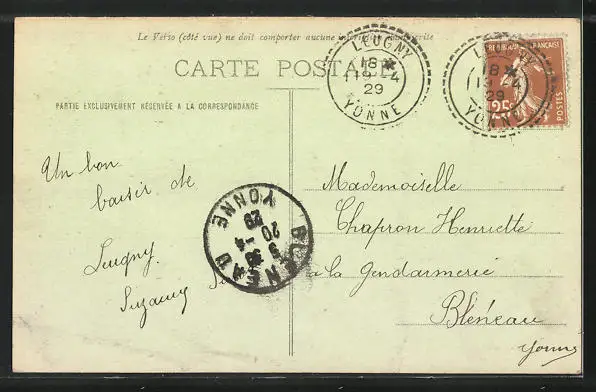 Le Verso (côté vue) ne doit comporter aucune inscription manuscrite
CARTE POSTALE
PARTIE EXCLUSIVEMENT RÉSERVÉE A LA CORRESPONDANCE
LEUGNY
18 *
19 - 4
29
YONNE
LEUGNY
18 *
19 - 4
29
YONNE
RÉPUBLIQUE FRANÇAISE
25c
POSTES
Un bon
baisir de
Leugny
Suzanne
BLENEAU
20 - 4
29
YONNE
Mademoiselle
Chapron Henriette
à la Gendarmerie
Bléneau
Yonne